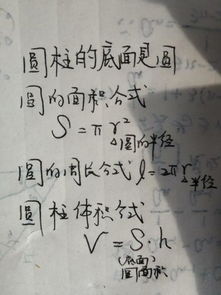 圆柱的底面是圆
圆的面积公式
S=πr²
圆的半径
圆的周长公式 l=2πr
半径
圆柱体积公式
V=Sh
(底面)
圆面积